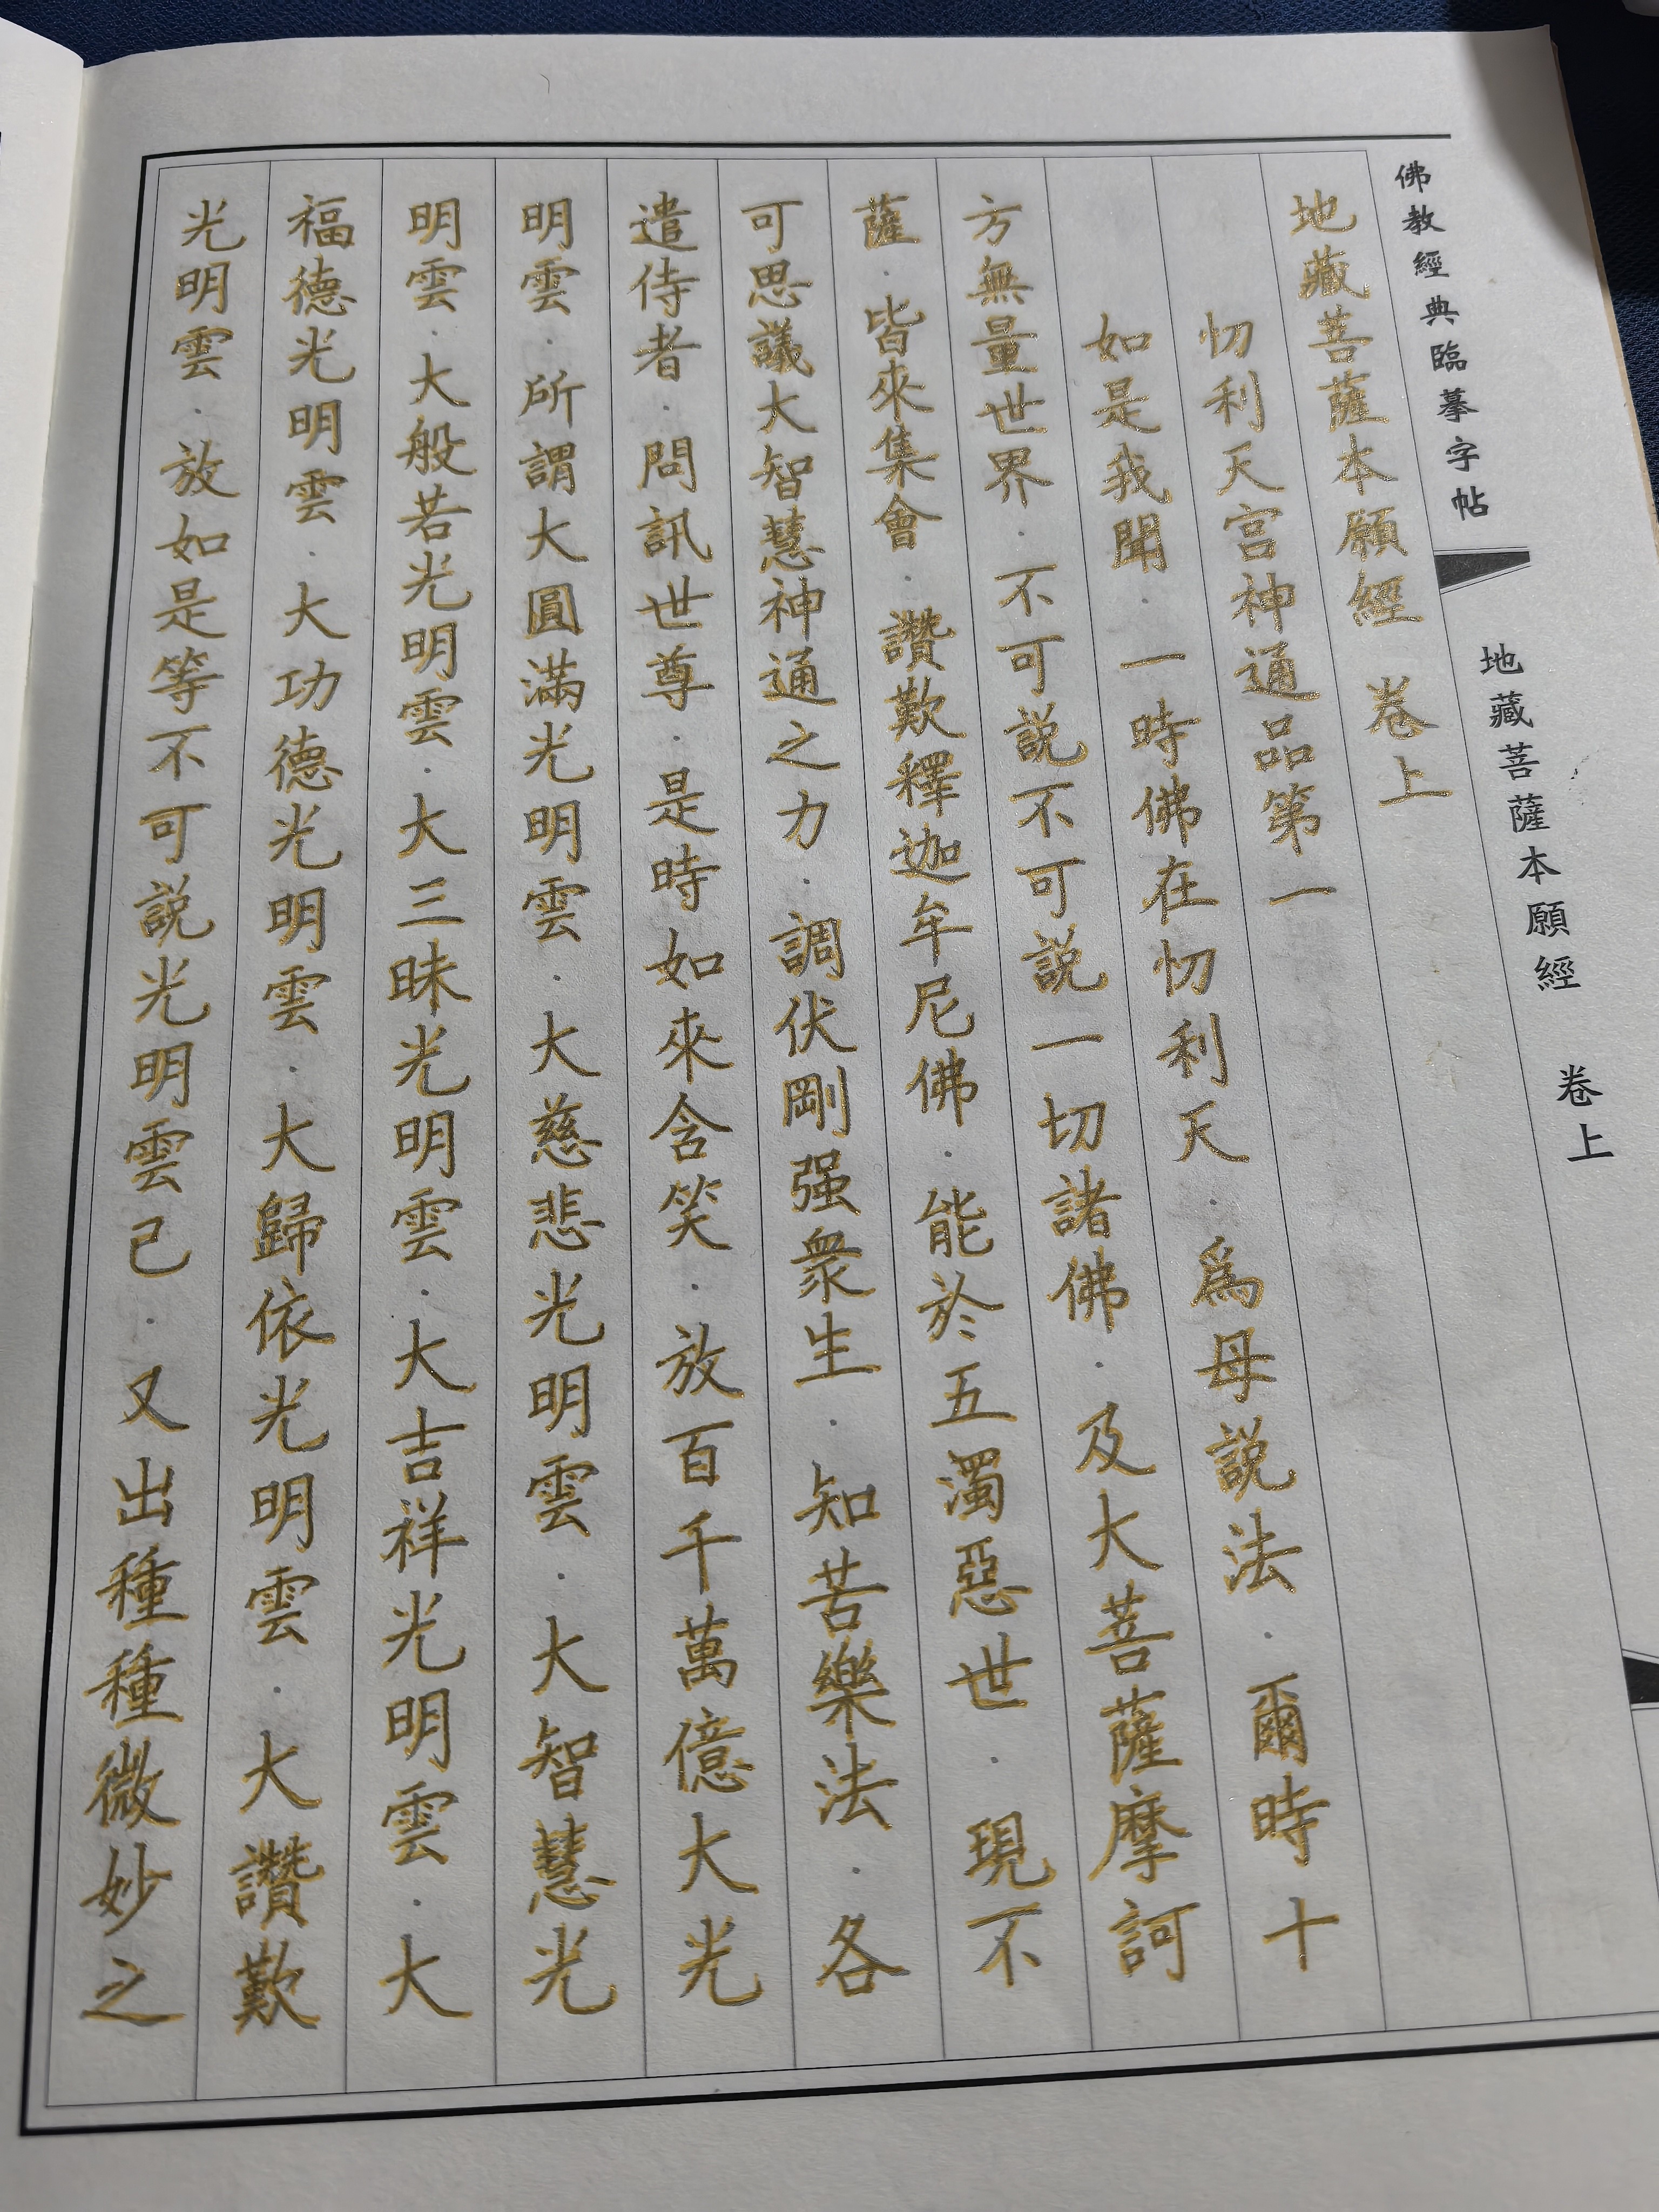 佛教經典臨摹字帖
地藏菩薩本願經 卷上
地藏菩薩本願經 卷上
忉利天宮神通品第一
如是我聞．一時佛在忉利天．爲母說法．爾時十
方無量世界．不可說不可說一切諸佛．及大菩薩摩訶
薩．皆來集會．讚歎釋迦牟尼佛．能於五濁惡世．現不
可思議大智慧神通之力．調伏剛强衆生．知苦樂法．各
遣侍者．問訊世尊．是時如來含笑．放百千萬億大光
明雲．所謂大圓滿光明雲．大慈悲光明雲．大智慧光
明雲．大般若光明雲．大三昧光明雲．大吉祥光明雲．大
福德光明雲．大功德光明雲．大歸依光明雲．大讚歎
光明雲．放如是等不可說光明雲已．又出種種微妙之